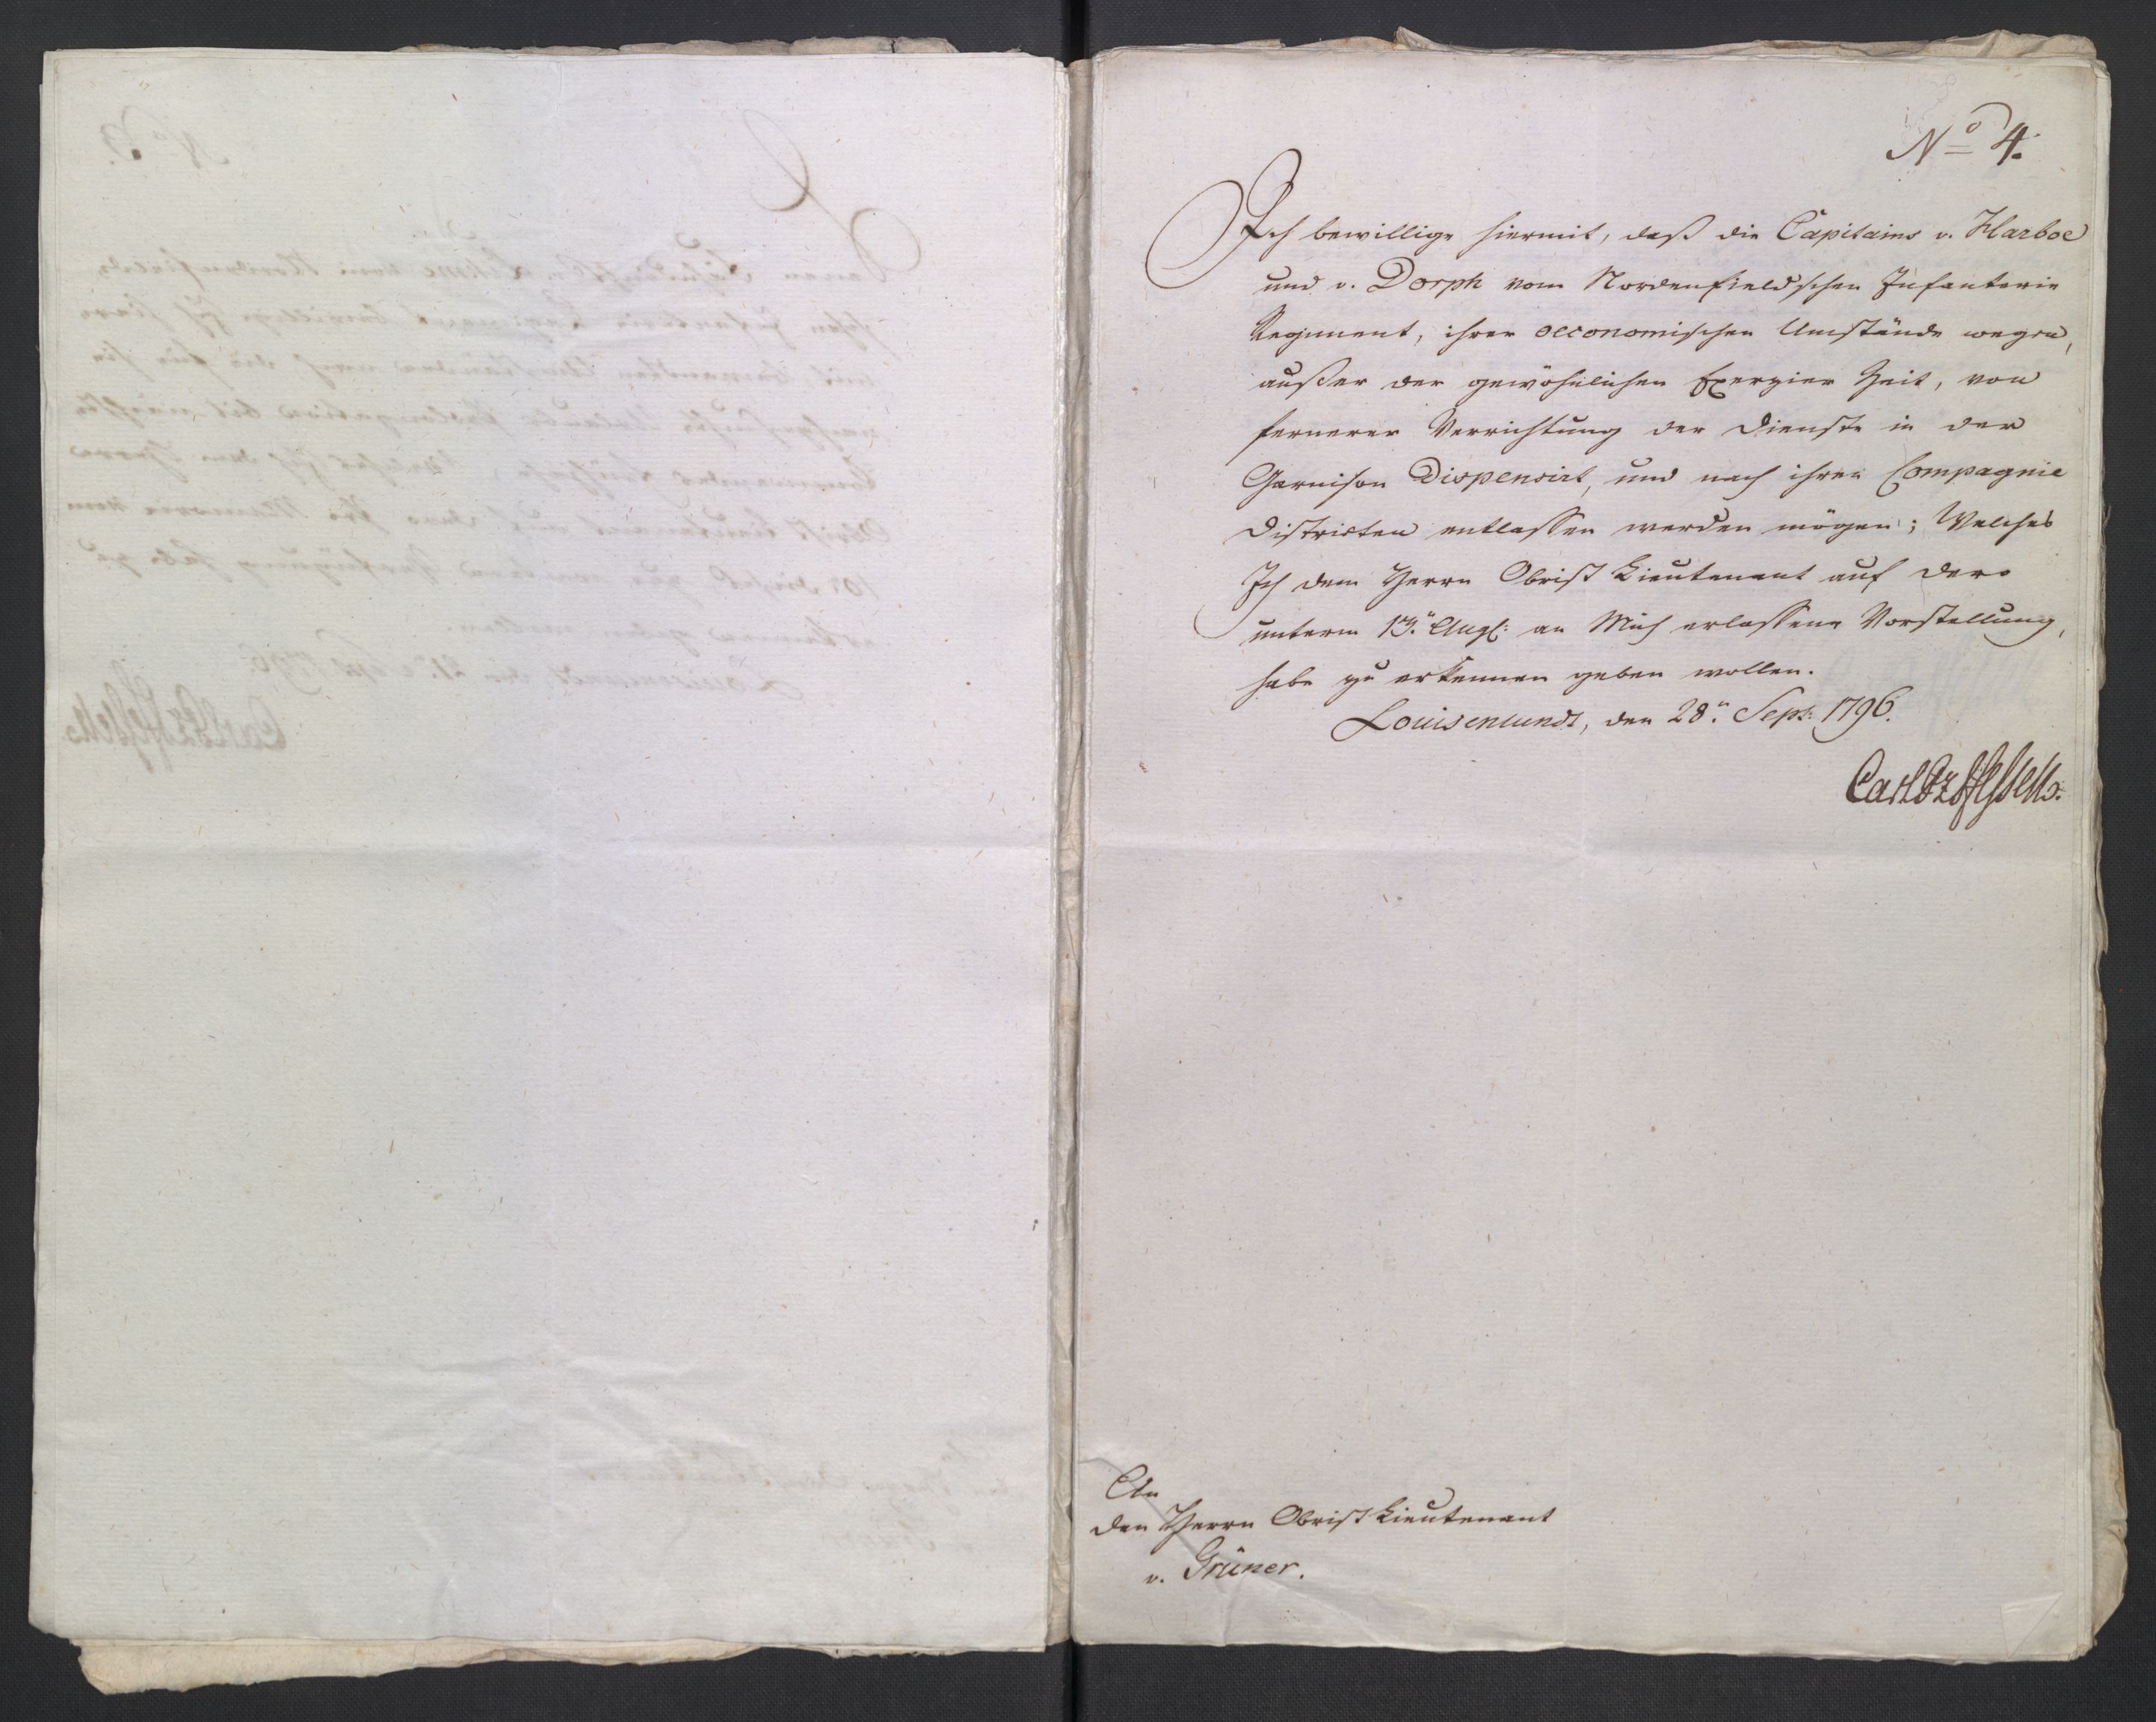 No 4.
Ich bewillige hiermit, daß die Capitains v. Harboe
und v. Dorph vom Nordenfieldschen Infanterie
Regiment, ihrer oeconomischen Umstände wegen,
außer der gewöhnlichen Exerzier Zeit, von
fernerer Verrichtung der Dienste in der
Garnison Dispensirt, und nach ihren Compagnie
Districten entlassen werden mögen; Welches
Ich dem Herrn Obrist Lieutenant auf dero
unterm 13.n Augs: an Mich erlassene Vorstellung,
habe zu erkennen geben wollen.
Louisenlundt, den 28.n Sept: 1796.
Carl Pz Hessen.
An
den Herrn Obrist Lieutenant
v. Grüner.